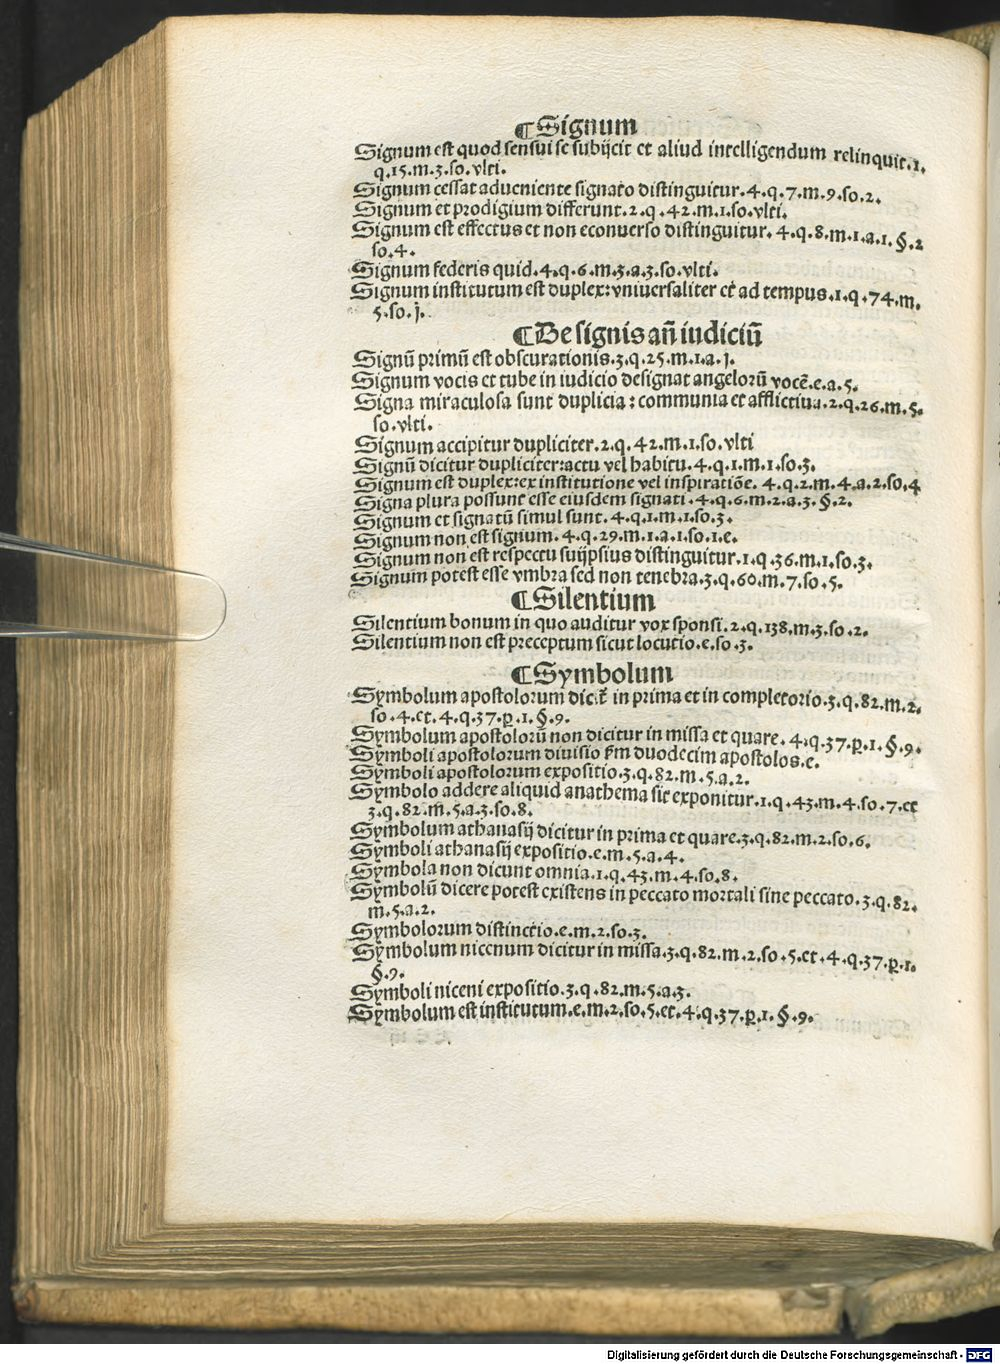 ¶Signum
Signum est quod sensui se subijcit et aliud intelligendum relinquit.1.
q.15.m.3.so.vlti.
Signum cessat adueniente signato distinguitur.4.q.7.m.9.so.2.
Signum et prodigium differunt.2.q.42.m.1.so.vlti.
Signum est effectus et non econuerso distinguitur.4.q.8.m.1.a.1.§.2
so.4.
Signum federis quid.4.q.6.m.3.a.3.so.vlti.
Signum institutum est duplex:vniuersaliter et ad tempus.1.q.74.m.
5.so.j.
¶De signis añ iudiciũ
Signũ primũ est obscurationis.3.q.25.m.1.a.j.
Signum vocis et tube in iudicio designat angelorũ vocẽ.e.a.5.
Signa miraculosa sunt duplicia:communia et afflictiua.2.q.26.m.5.
so.vlti.
Signum accipitur dupliciter.2.q.42.m.1.so.vlti
Signũ dicitur dupliciter:actu vel habitu.4.q.1.m.1.so.3.
Signum est duplex:ex institutione vel inspiratiõe.4.q.2.m.4.a.2.so.4
Signa plura possunt esse eiusdem signati.4.q.6.m.2.a.3.§.2.
Signum et signatũ simul sunt.4.q.1.m.1.so.3.
Signum non est signum.4.q.29.m.1.a.1.so.1.e.
Signum non est respectu suijpsius distinguitur.1.q.36.m.1.so.3.
Signum potest esse vmbra sed non tenebra.3.q.60.m.7.so.5.
¶Silentium
Silentium bonum in quo auditur vox sponsi.2.q.138.m.3.so.2.
Silentium non est preceptum sicut locutio.e.so.3.
¶Symbolum
Symbolum apostolorum dicit̃ in prima et in completorio.3.q.82.m.2.
so.4.et.4.q.37.ꝑ.1.§.9.
Symbolum apostolorũ non dicitur in missa et quare.4.q.37.ꝑ.1.§.9.
Symboli apostolorum diuisio ẜm duodecim apostolos.e.
Symboli apostolorum expositio.3.q.82.m.5.a.2.
Symbolo addere aliquid anathema sit exponitur.1.q.43.m.4.so.7.et
3.q.82.m.5.a.3.so.8.
Symbolum athanasij dicitur in prima et quare.3.q.82.m.2.so.6.
Symboli athanasij expositio.e.m.5.a.4.
Symbola non dicunt omnia.1.q.43.m.4.so.8.
Symbolũ dicere potest existens in peccato mortali sine peccato.3.q.82.
m.5.a.2.
Symbolorum distinctio.e.m.2.so.3.
Symbolum nicenum dicitur in missa.3.q.82.m.2.so.5.et.4.q.37.ꝑ.1.
§.9.
Symboli niceni expositio.3.q.82.m.5.a.3.
Symbolum est institutum.e.m.2.so.5.et.4.q.37.ꝑ.1.§.9.
Digitalisierung gefördert durch die Deutsche Forschungsgemeinschaft - DFG